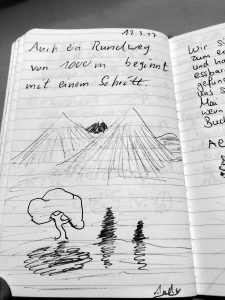 12.3.07
Auch ein Rundweg
von 1000 m beginnt
mit einem Schritt.
Andy
Wir si
zum e
und ha
essba
gefun
uns s
Mai
wenn
Buc